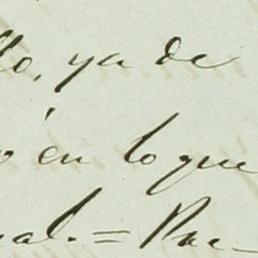 llo, ya de
o en lo que
nal. = Pue-